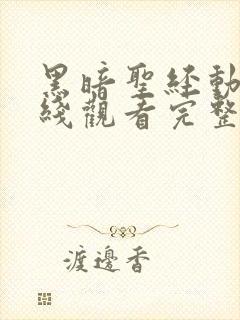 黑暗聖経動
綫觀看完整
渡邊香